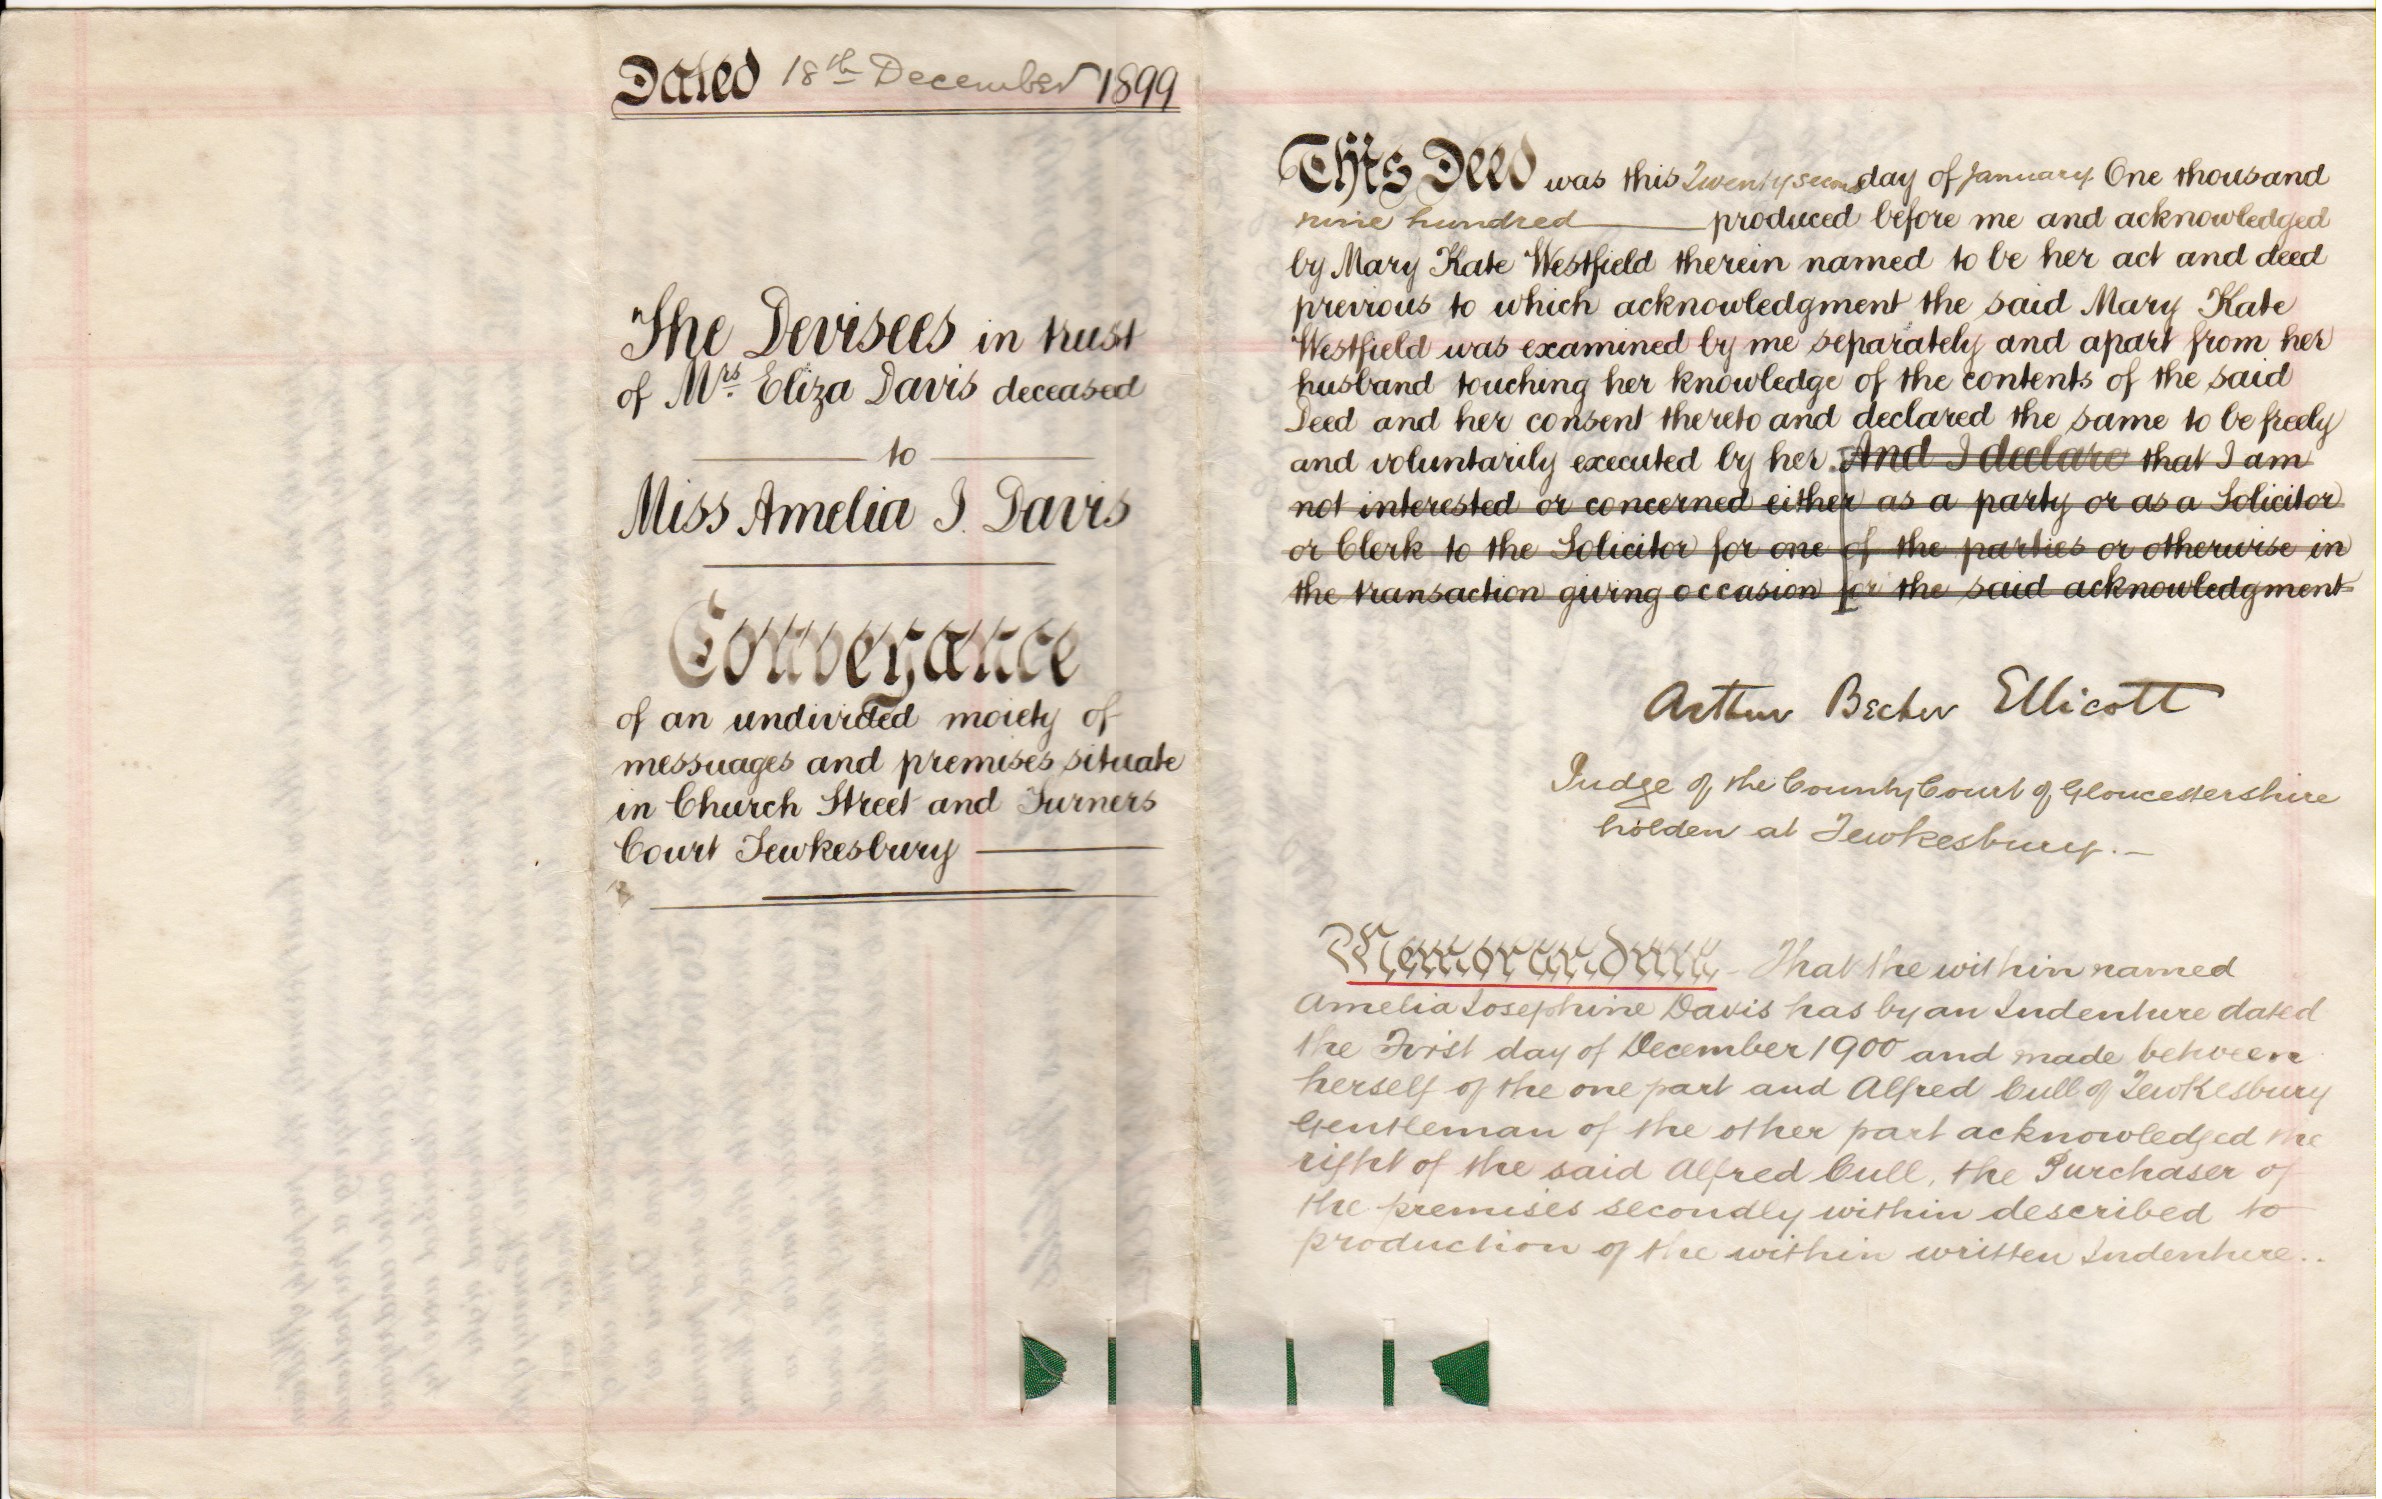 Dated 18th December 1899
The Devisees in trust
of Mrs. Eliza Davis deceased
to
Miss Amelia J. Davis
Conveyance
of an undivided moiety of
messuages and premises situate
in Church Street and Turners
Court Tewkesbury
This Deed was this Twenty second day of January One thousand
nine hundred produced before me and acknowledged
by Mary Kate Westfield therein named to be her act and deed
previous to which acknowledgment the said Mary Kate
Westfield was examined by me separately and apart from her
husband touching her knowledge of the contents of the said
Deed and her consent thereto and declared the same to be freely
and voluntarily executed by her. And I declare that I am
not interested or concerned either as a party or as a Solicitor
or Clerk to the Solicitor for one of the parties or otherwise in
the transaction giving occasion for the said acknowledgment
Arthur Becher Ellicott
Judge of the County Court of Gloucestershire
holden at Tewkesbury.—
Memorandum – That the within named
Amelia Josephine Davis has by an Indenture dated
the First day of December 1900 and made between
herself of the one part and Alfred Cull of Tewkesbury
Gentleman of the other part acknowledged the
right of the said Alfred Cull, the Purchaser of
the premises secondly within described to
production of the within written Indenture..